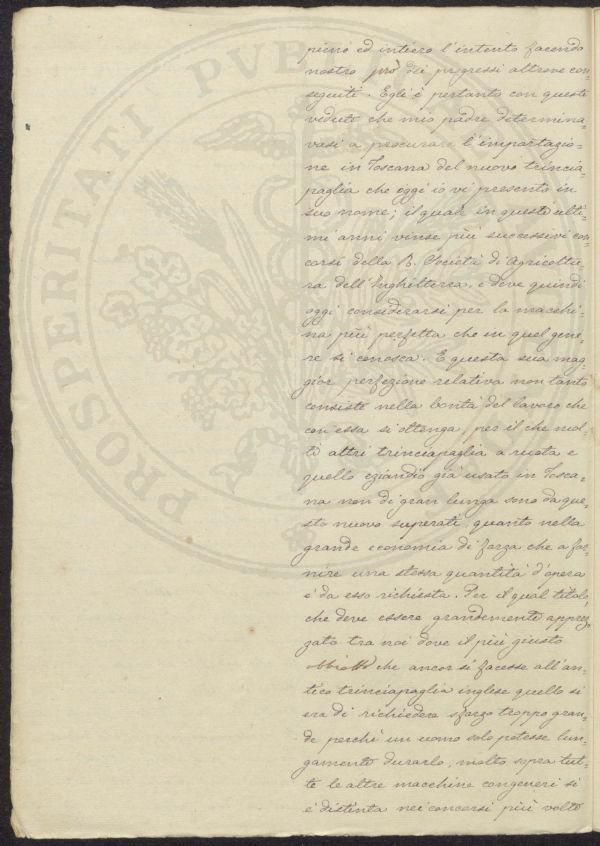 PROSPERITATI PVBL
pieno ed intiero l'intento facendo
nostro prò dei progressi altrove con=
seguiti. Egli è pertanto con queste
vedute che mio padre determina=
vasi a procurare l'importazio=
ne in Toscana del nuovo trincia=
paglia che oggi io vi presento in
suo nome; il quale in questi ulti=
mi anni vinse più successivi con=
corsi della R. Società di Agricoltu=
ra dell'Inghilterra, e deve quindi
oggi considerarsi per la macchi=
na più perfetta che in quel gene=
re si conosca. E questa sua mag=
gior perfezione relativa non tanto
consiste nella bontà del lavoro che
con essa si ottenga, per il che mol=
ti altri trinciapaglia a ruota e
quello eziandio già usato in Tosca=
na non di gran lunga sono da que=
sto nuovo superati, quanto nella
grande economia di forza che a for=
nire una stessa quantità d'opera
è da esso richiesta. Per il qual titolo,
che deve essere grandemente apprez=
zato tra noi dove il più giusto
obbietto che ancor si facesse all'an=
tico trinciapaglia inglese quello si
era di richieder sforzo troppo gran=
de perchè un uomo solo potesse lun=
gamente durarlo, molto sopra tut=
te le altre macchine congeneri si
è distinta nei concorsi più volte